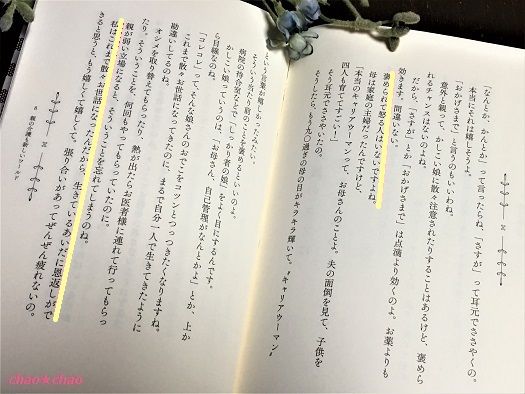 「なんとか、かんとか」って言ったらね、「さすが」って耳元でささやくの。
本当にそれは嬉しそうよ。
「おかげさまで」と言うのもいいわね。
意外と親って、かしこい娘に散々注意されたりすることはあるけど、褒めら
れるチャンスはないのよね。
だから、「さすが」とか「おかげさまで」は点滴より効くのよ。お薬よりも
効きます、間違いない。
褒められて怒る人はいないですよね。
母は家庭の主婦だったんですけど、
「本当のキャリアウーマンって、お母さんのことよ。夫の面倒を見て、子供を
四人も育ててすごい！」
そう耳元でささやいたの。
そうしたら、もう九〇過ぎの母の目がキラキラ輝いて。〝キャリアウーマン〟
という言葉が嬉しかったみたい。
そういう当たり前のことを褒めるといいのよ。
病院の待合室などで「しっかり者の娘」をよく目にするんです。
かしこい娘っていうのは、「お母さん、自己管理がなんとかよ」とか、上か
「コレコレ」って、そんな娘さんのおでこをコツンとつっつきたくなりますね。
これまで散々お世話になってきたのに、まるで自分一人で生きてきたように
勘違いしてるのね。
オシメを取り替えてもらったり、熱が出たらお医者様に連れて行ってもらっ
たり。そういうことを、何回もやってもらっていたのに。
親が弱い立場になると、そういうことを忘れてしまうのね。
私はこれまで散々お世話になったんだから、生きているあいだに恩返しがで
きると思うと、もう嬉しくて嬉しくて。張り合いがあってぜんぜん疲れないの。
6 親の介護も新しいワールド
chao☆chao